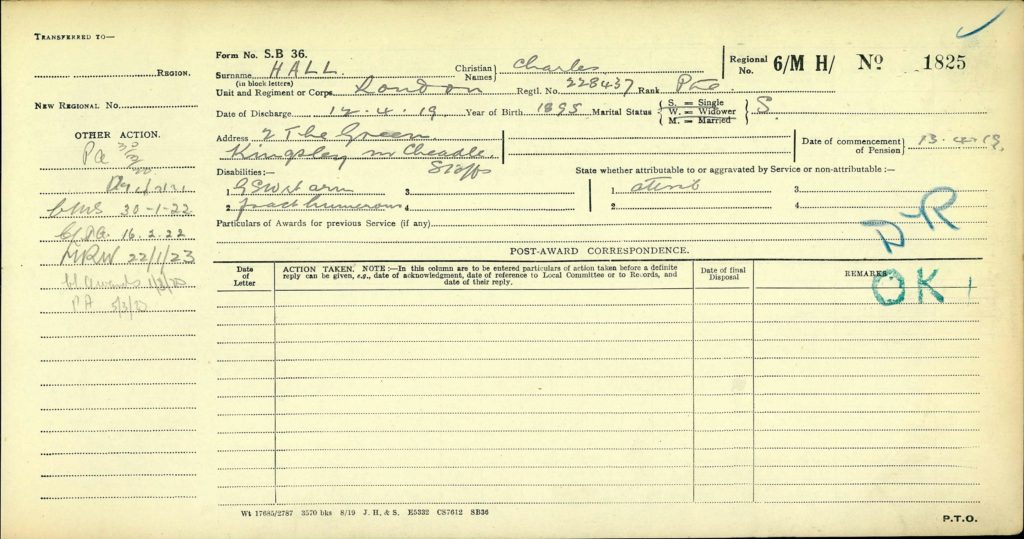 TRANSFERRED TO—
REGION.
NEW REGIONAL No.
OTHER ACTION.
PA
CMS 30-1-22
16.2.22
MRW 22/1/23
PA 5/3/20
Form No. S.B 36.
Surname HALL
(in block letters)
Christian Names Charles
Regional No. 6/M H/ No 1825
Unit and Regiment or Corps London Regtl. No. 228437 Rank Pte
Date of Discharge 12.4.19 Year of Birth 1895 Marital Status S. = Single W. = Widower M. = Married S
Address 2 The Green
Kingsley nr Cheadle
Staffs
Date of commencement of Pension 13.4.19.
Disabilities:—
State whether attributable to or aggravated by Service or non-attributable:—
1 GSW rt arm 3 1 attrib 3
2 fract humerous 4 2 4
Particulars of Awards for previous Service (if any)
DYR
POST-AWARD CORRESPONDENCE.
Date of Letter
ACTION TAKEN. NOTE:—In this column are to be entered particulars of action taken before a definite reply can be given, e.g., date of acknowledgment, date of reference to Local Committee or to Records, and date of their reply.
Date of final Disposal
REMARKS
OK
Wt 17685/2787 3570 bks 8/19 J. H. & S. E5332 CS7612 SB36
P.T.O.